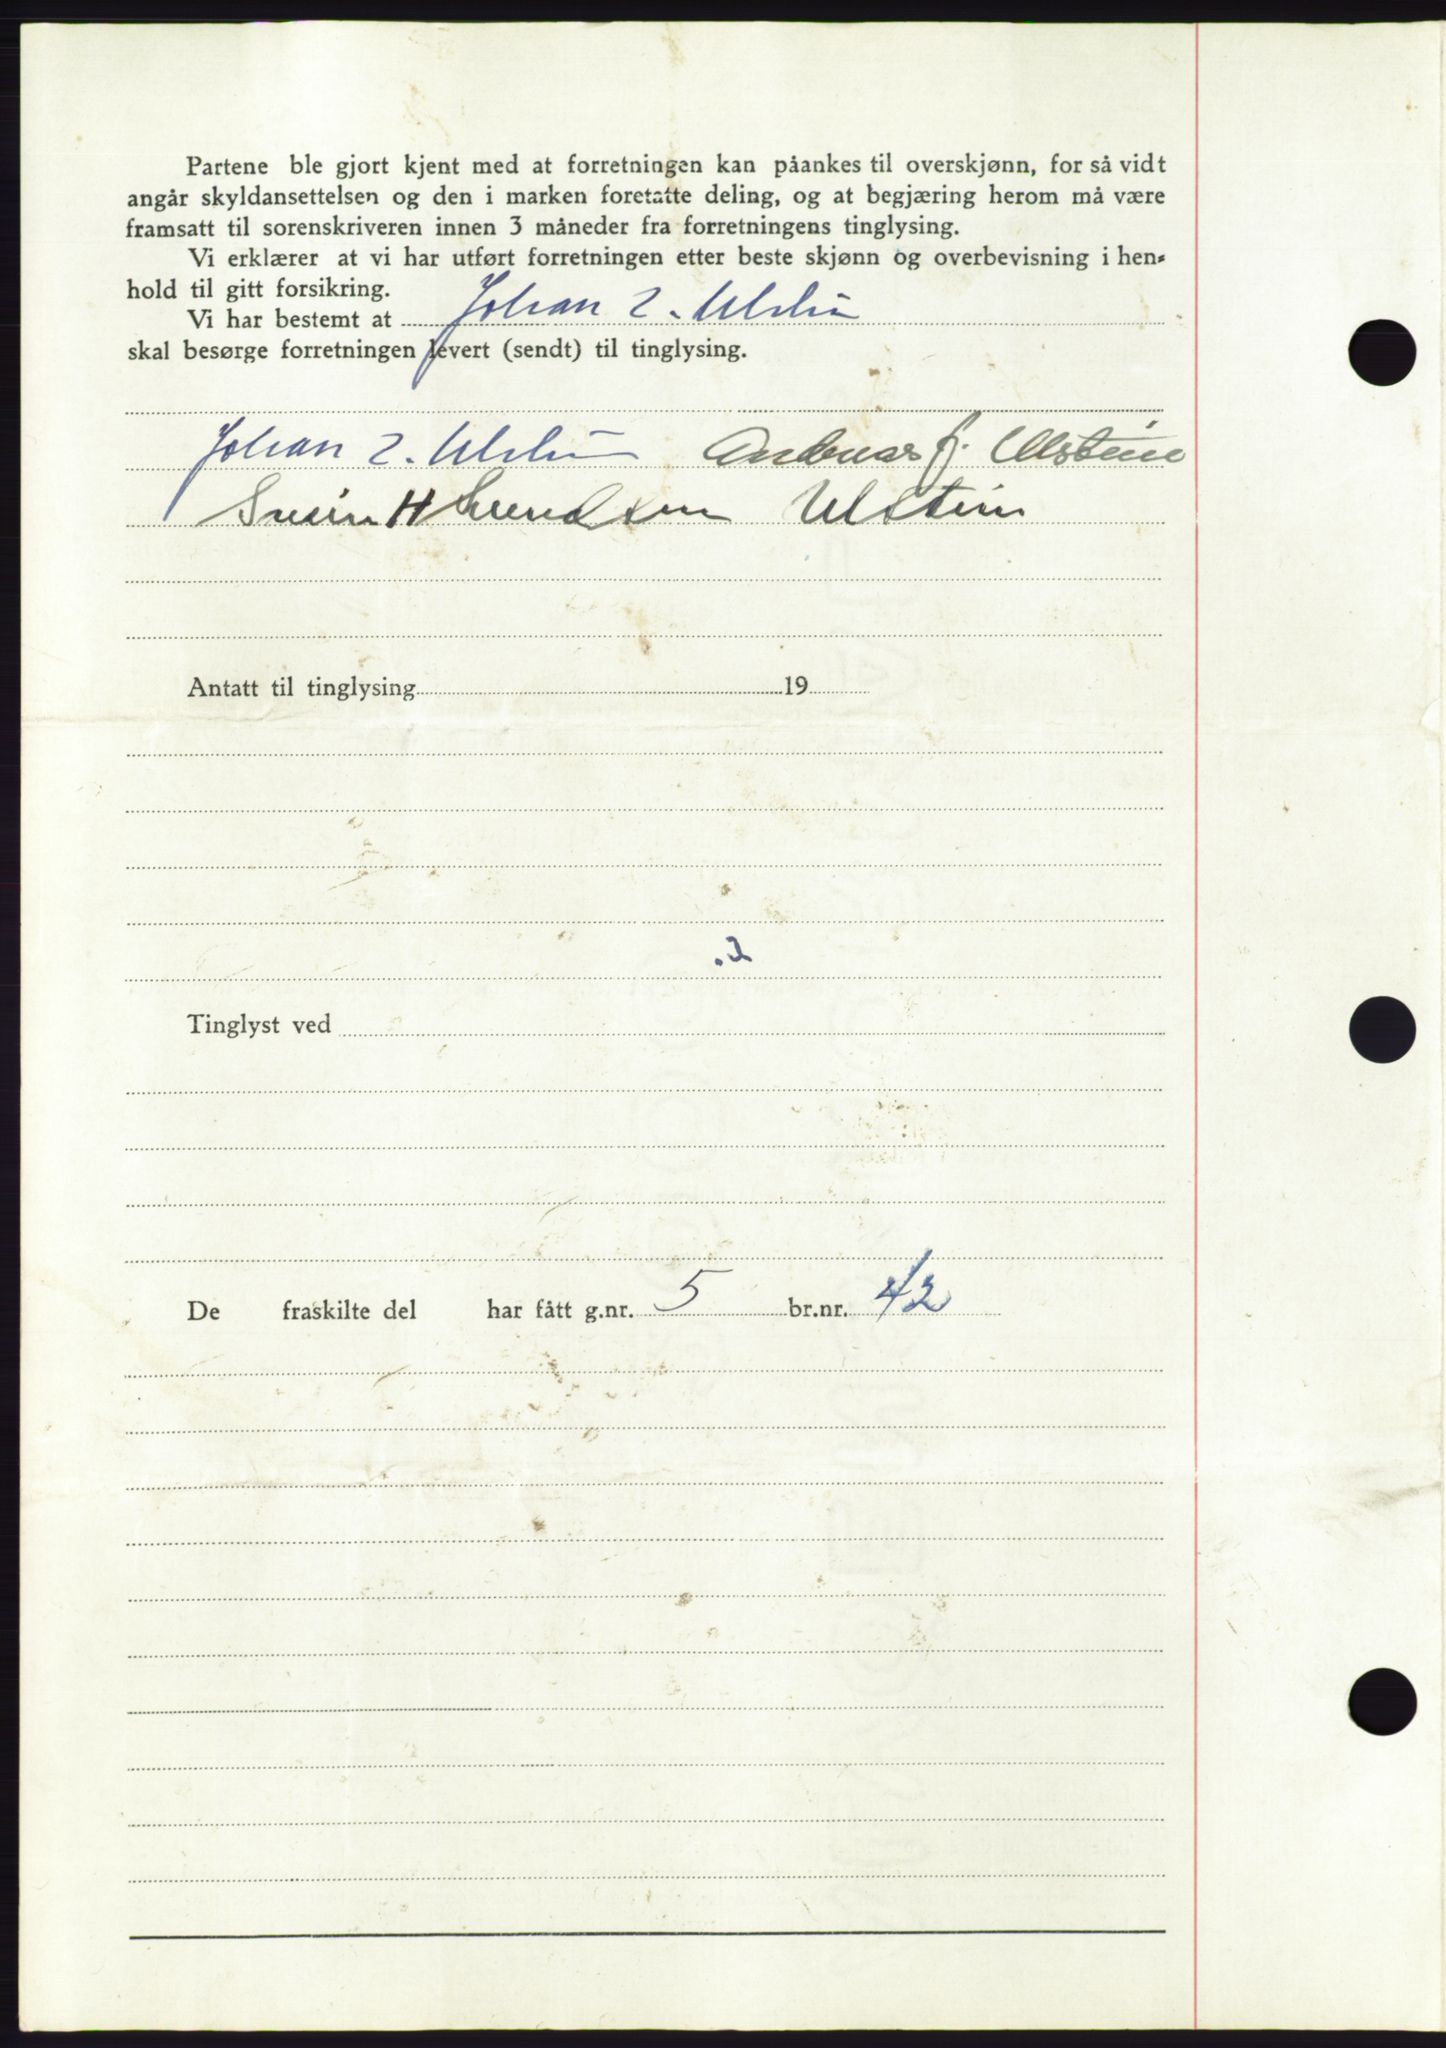 Partene ble gjort kjent med at forretningen kan påankes til overskjønn, for så vidt
angår skyldansettelsen og den i marken foretatte deling, og at begjæring herom må være
framsatt til sorenskriveren innen 3 måneder fra forretningens tinglysing.
Vi erklærer at vi har utført forretningen etter beste skjønn og overbevisning i hen-
hold til gitt forsikring.
Vi har bestemt at Johan Z. Ulstein
skal besørge forretningen levert (sendt) til tinglysing.
Johan Z. Ulstein Andreas J. Ulstein
Svein H Svendsen Ulstein
Antatt til tinglysing 19
Tinglyst ved
De fraskilte del har fått g.nr. 5 br.nr. 42